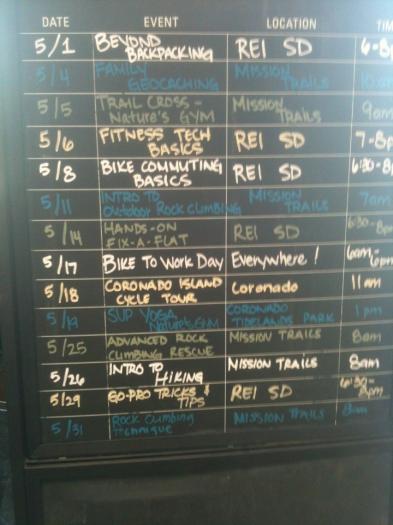 DATE EVENT LOCATION TIM
5/1 BEYOND BACKPACKING REI SD 6-8p
5/4 FAMILY GEOCACHING MISSION TRAILS
5/5 TRAIL CROSS - NATURE'S GYM MISSION TRAILS 9am
5/6 FITNESS TECH BASICS REI SD 7-8p
5/8 BIKE COMMUTING BASICS REI SD 6:30-8p
5/11 INTRO TO Outdoor Rock Climbing MISSION TRAILS 7am
5/14 HANDS-ON FIX-A-FLAT REI SD 6:30-8p
5/17 BIKE TO WORK DAY Everywhere! 6am-6pm
5/18 CORONADO ISLAND CYCLE TOUR CORONADO 11am
5/19 SUP YOGA, Nature's GYM CORONADO TIDELANDS PARK 1pm
5/25 ADVANCED ROCK CLIMBING RESCUE MISSION TRAILS 8am
5/26 INTRO TO HIKING MISSION TRAILS 8am
5/29 GO-PRO TRICKS & TIPS REI SD 6:30-8pm
5/31 Rock Climbing Technique MISSION TRAILS 8am